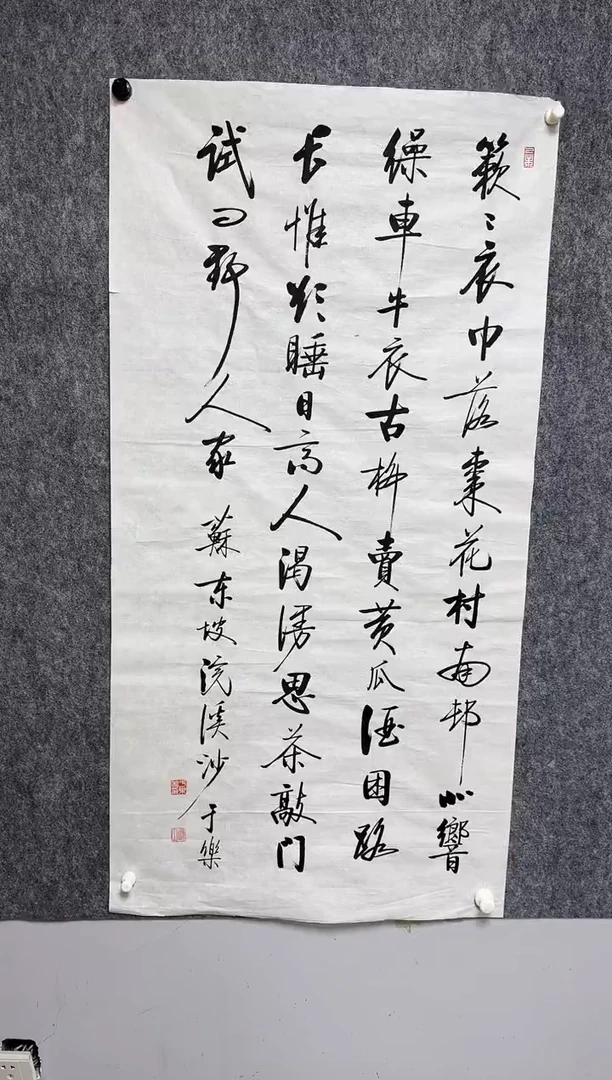 簌〻衣巾落棗花村南邨北響
繰車牛衣古柳賣黄瓜酒困路
长惟欲睡日高人渴漫思茶敲门
试问野人家 蘇东坡浣溪沙 于樂